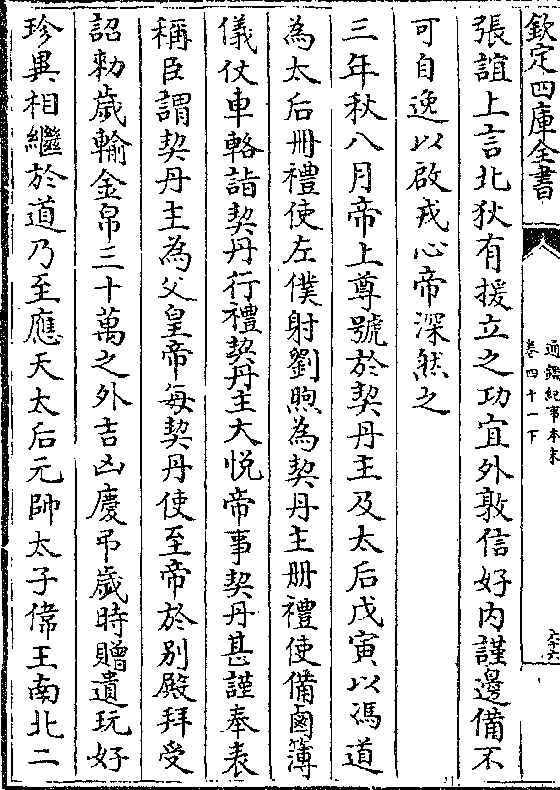 欽定四庫全書
通鑑紀事本末
卷四十一下
六十六
張誼上言北狄有援立之功宜外敦信好内謹邊備不
可自逸以啟戎心帝深然之
三年秋八月帝上尊號於契丹主及太后戊寅以馮道
為太后冊禮使左僕射劉煦為契丹主冊禮使備鹵簿
儀仗車輅詣契丹行禮契丹主大悦帝事契丹甚謹奉表
稱臣謂契丹主為父皇帝每契丹使至帝於別殿拜受
詔勅歳輸金帛三十萬之外吉凶慶弔歳時贈遺玩好
珍異相繼於道乃至應天太后元帥太子偉王南北二